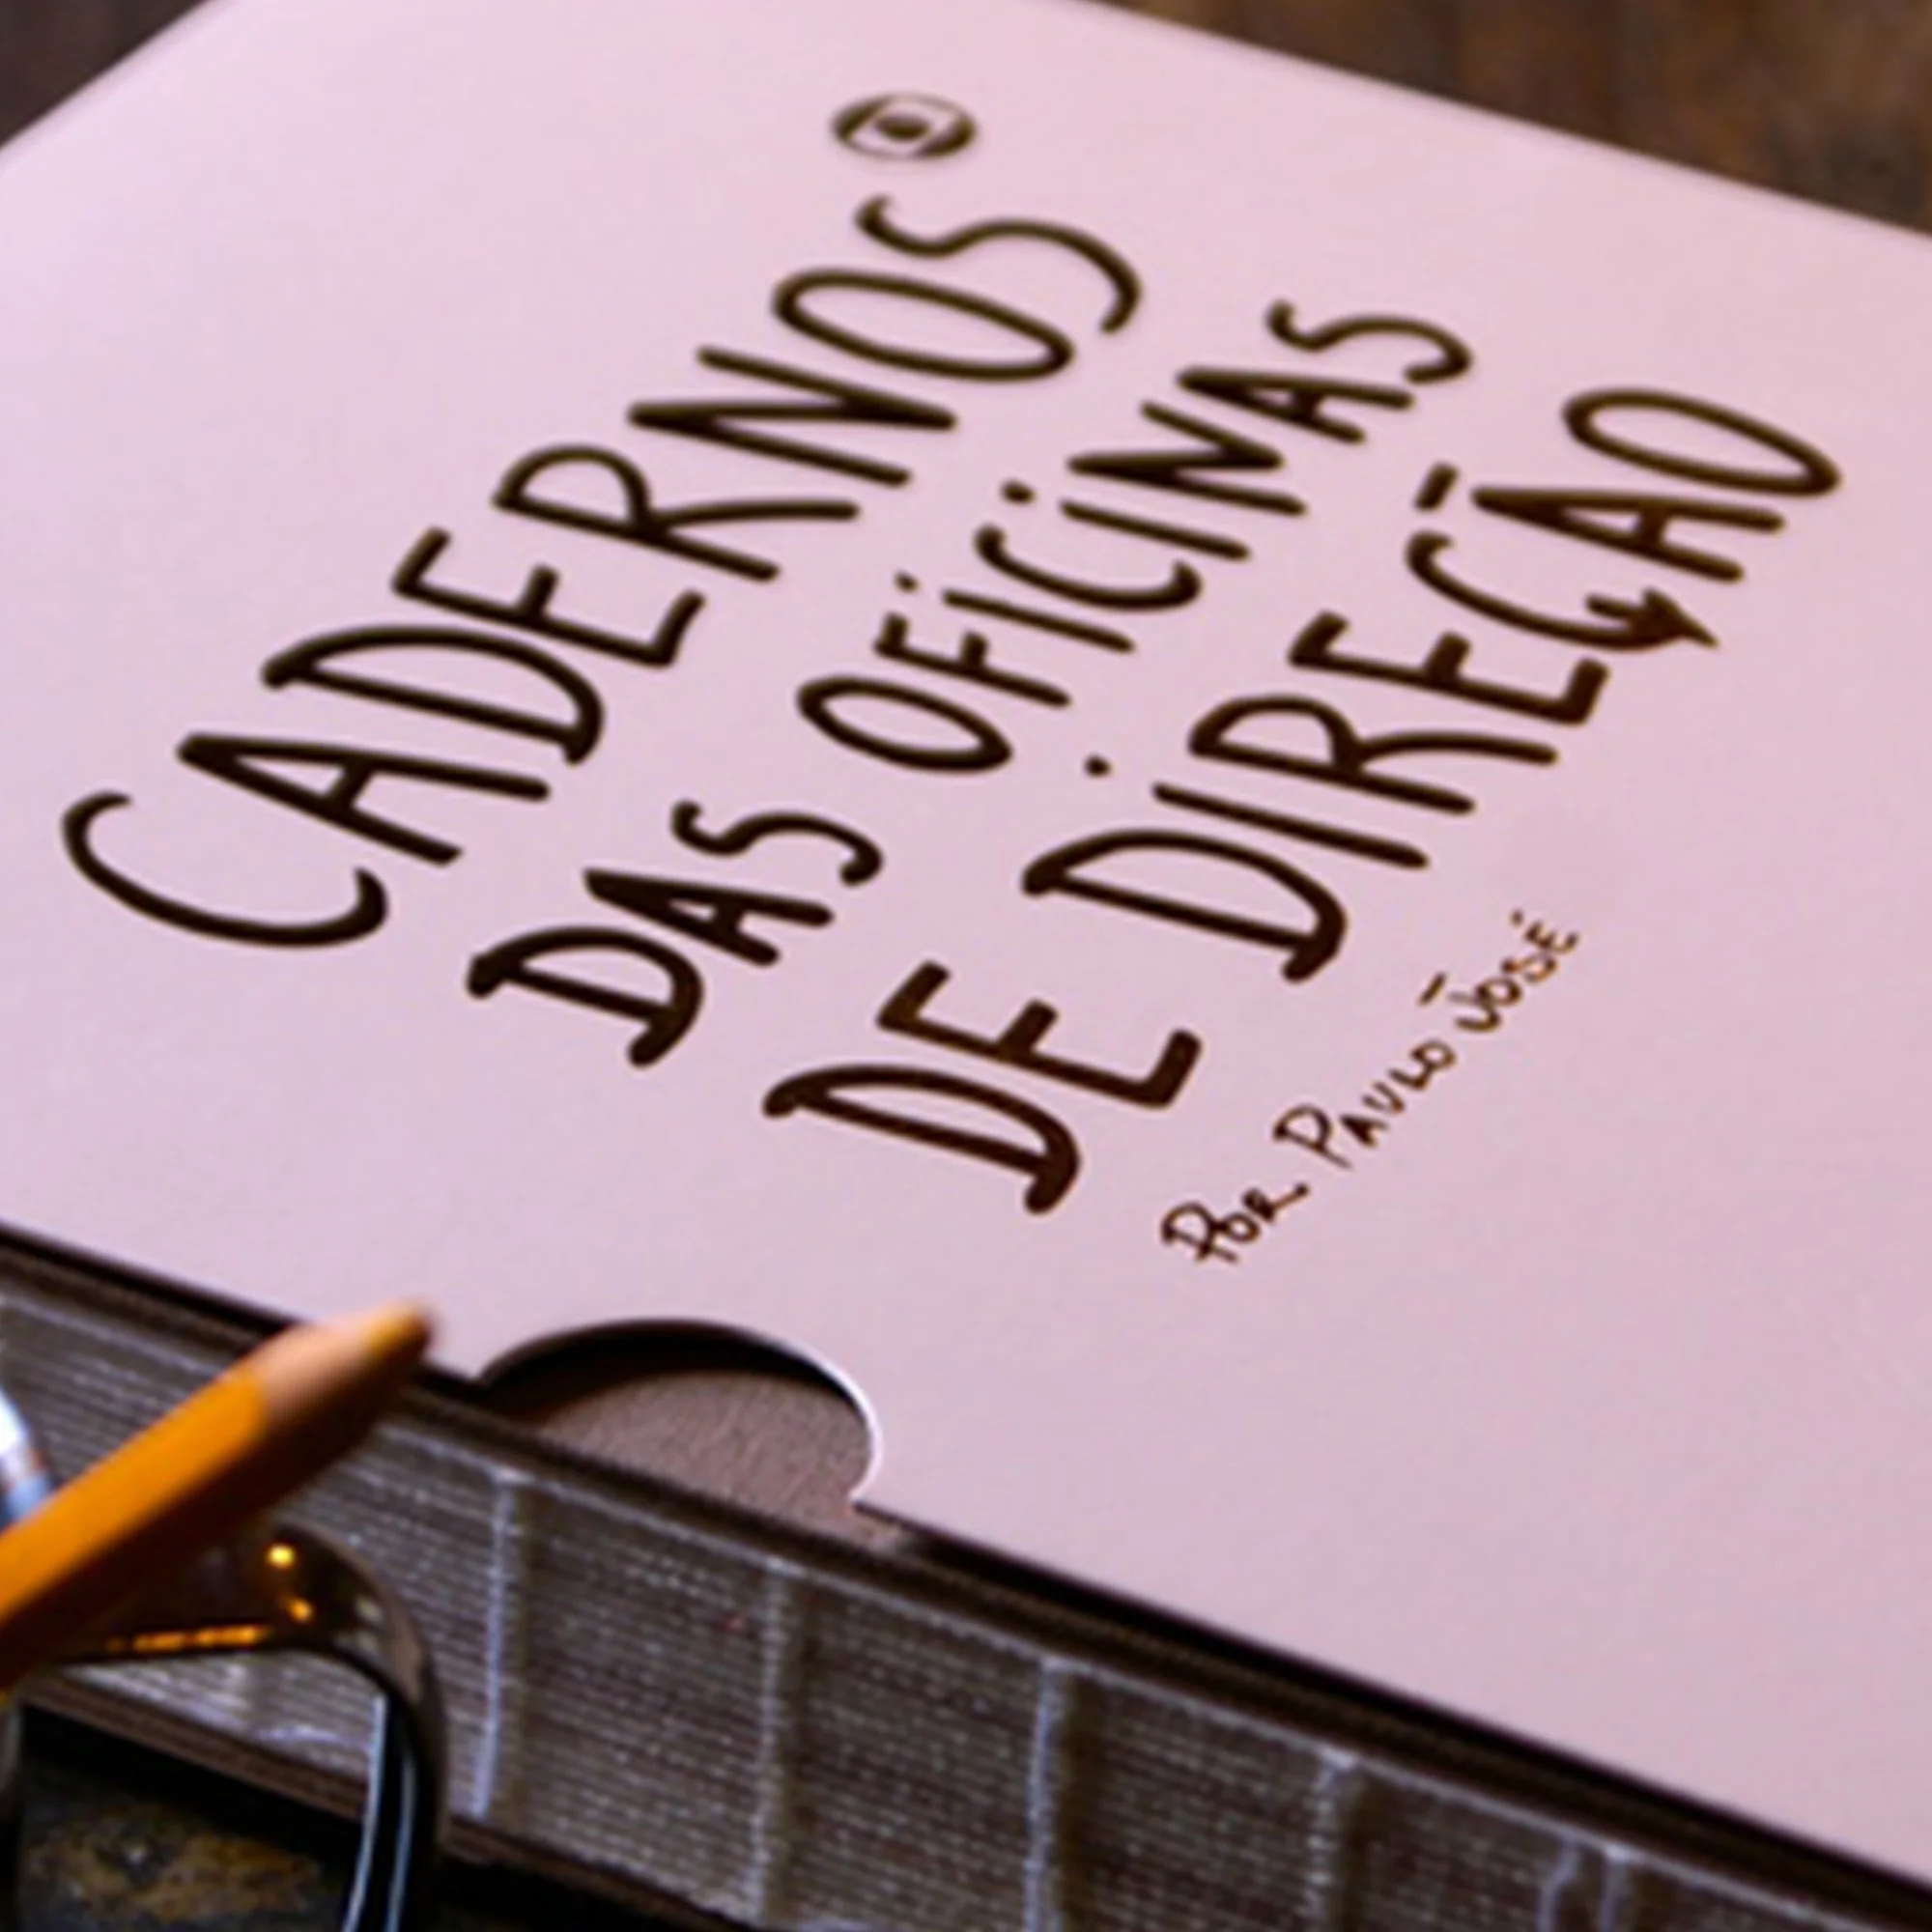 CADERNOS
DAS OFICINAS
DE DIREÇÃO
POR PAULO JOSÉ